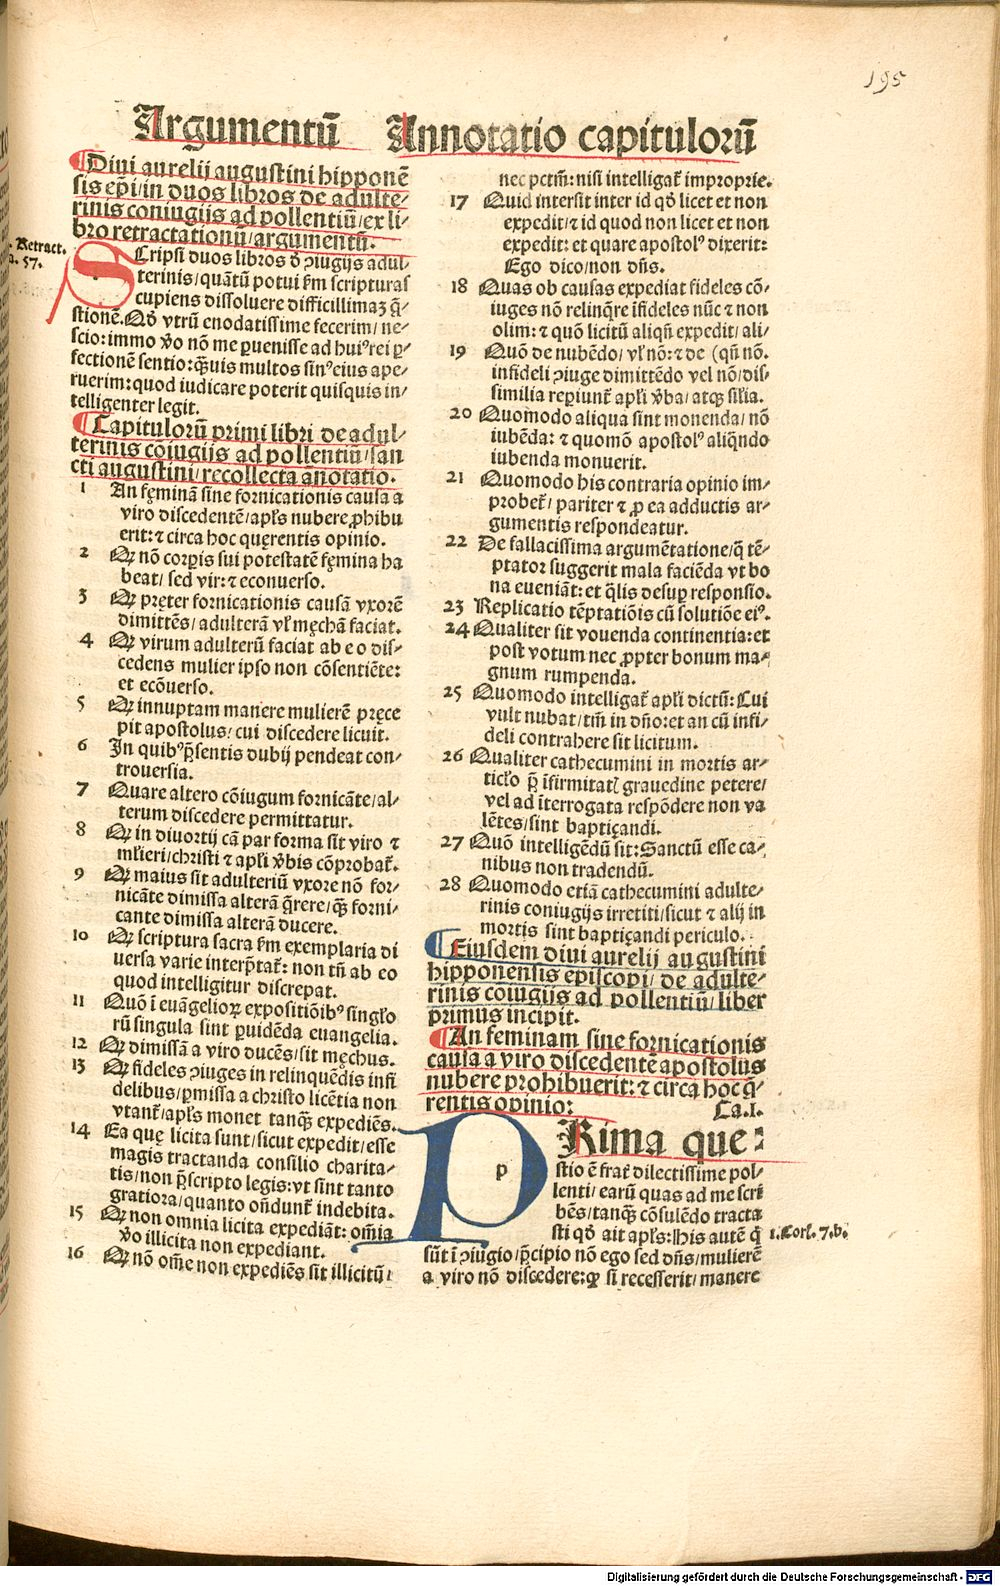 195
Argumentū
Annotatio capitulorū
Diui aurelij augustini hipponē
sis ep̄i/in duos libros de adulte⸗
rinis coniugijs ad pollentiū/ex li⸗
bro retractationū/argumentū.
Retract.
a. 57.
SCripsi duos libros ꝺ̄ ꝯiugijs adul⸗
terinis/quātū potui ẜm scripturas
cupiens dissoluere difficillimaꝫ q̄⸗
stionē.Qꝺ̄ vtrū enodatissime fecerim/ne⸗
scio:immo ꝟo nō me ꝑuenisse ad huiꝰrei ꝑ⸗
fectionē sentio:q̄uis multos sinꝰeius ape⸗
ruerim:quod iudicare poterit quisquis in⸗
telligenter legit.
Capitulorū primi libri de adul⸗
terinis cōiugijs ad pollentiū/san
cti augustini/recollecta ānotatio.
1 An fęminā sine fornicationis causa a
viro discedentē/apl̄s nubere ꝓhibu
erit:⁊ circa hoc quęrentis opinio.
2 Qꝛ nō corꝑis sui potestatē fęmina ha
beat/ sed vir:⁊ econuerso.
3 Qꝛ pręter fornicationis causā vxorē
dimittēs/adulterā vl̓ męchā faciat.
4 Qꝛ virum adulterū faciat ab eo dis⸗
cedens mulier ipso non cōsentiēte:
et ecōuerso.
5 Qꝛ innuptam manere mulierē pręce
pit apostolus/cui discedere licuit.
6 In quibꝰp̄sentis dubij pendeat con⸗
trouersia.
7 Quare altero cōiugum fornicāte/al⸗
terum discedere permittatur.
8 Qꝛ in diuortij cā par forma sit viro ⁊
ml̓ieri/christi ⁊ apl̓i ꝟbis cōprobat̄.
9 Qꝛ maius sit adulteriū vxore nō for⸗
nicāte dimissa alterā q̄rere/q̄ꝫ forni⸗
cante dimissa alterā ducere.
10 Qꝛ scriptura sacra ẜm exemplaria di
uersa varie interp̄tat̄: non tn̄ ab eo
quod intelligitur discrepat.
11 Quō i euāgelioꝝ expositiōibꝰ singl̓o
rū singula sint ꝑuidēda euangelia.
12 Qꝛ dimissā a viro ducēs/sit męchus.
13 Qꝛ fideles ꝯiuges in relinquēdis infi
delibus/ꝑmissa a christo licētia non
vtant̄/apl̄s monet tanq̄ꝫ expediēs.
14 Ea quę licita sunt/sicut expedit/esse
magis tractanda consilio charita⸗
tis/non p̄scripto legis:vt sint tanto
gratiora/quanto ōndunt̄ indebita.
15 Qꝛ non omnia licita expediāt: om̄ia
ꝟo illicita non expediant.
16 Qꝛ nō om̄e non expediēs sit illicitū/
nec pctm̄: nisi intelligat̄ improprie.
17 Quid intersit inter id qꝺ̄ licet et non
expedit/⁊ id quod non licet et non
expedit: et quare apostolꝰ dixerit:
Ego dico/non dn̄s.
18 Quas ob causas expediat fideles cō⸗
iuges nō relinq̄re īfideles nūc ⁊ non
olim: ⁊ quō licitū aliqn̄ expedit/ ali⸗
19 Quō de nubēdo/ vl̓ nō: ⁊ de (qn̄ nō.
infideli ꝯiuge dimittēdo vel nō/dis⸗
similia reꝑiunt̄ apl̓i ꝟba/ atqꝫ sil̓ia.
20 Quomodo aliqua sint monenda/ nō
iubēda: ⁊ quomō apostolꝰ aliq̄ndo
iubenda monuerit.
21 Quomodo his contraria opinio im⸗
probet̄/ pariter ⁊ ꝓ ea adductis ar⸗
gumentis respondeatur.
22 De fallacissima argumētatione/q̄ tē⸗
ptator suggerit mala faciēda vt bo
na eueniāt: et q̄lis desuꝑ responsio.
23 Replicatio tēptatiōis cū solutiōe eiꝰ.
24 Qualiter sit vouenda continentia:et
post votum nec ꝓpter bonum ma⸗
gnum rumpenda.
25 Quomodo intelligat̄ apl̓i dictū:Cui
vult nubat/tm̄ in dn̄o:et an cū infi⸗
deli contrahere sit licitum.
26 Qualiter cathecumini in mortis ar⸗
ticl̓o p̄ īfirmitatl̓ grauedine petere/
vel ad īterrogata respōdere non va
lētes/sint baptiçandi.
27 Quō intelligēdū sit:Sanctū esse ca⸗
nibus non tradendū.
28 Quomodo etiā cathecumini adulte⸗
rinis coniugijs irretiti/sicut ⁊ alij in
mortis sint baptiçandi periculo.
Eiusdem diui aurelij augustini
hipponensis episcopi/ de adulte⸗
rinis cōiugijs ad pollentiū/liber
primus incipit.
An feminam sine fornicationis
causa a viro discedentē apostolus
nubere prohibuerit: ⁊ circa hoc q̄⸗
rentis opinio: Ca.I.
PRima que⸗
p
stio ē frat̄ dilectissime pol⸗
lenti/ earū quas ad me scri
bēs/ tanq̄ꝫ cōsulēdo tracta
sti qꝺ̄ ait apl̄s: His autē q̄
1.Corl̓. 7.b.
sūt ī ꝯiugio/p̄cipio nō ego sed dn̄s/mulierē
a viro nō discedere:qꝛ si recesserit/manere
Digitalisierung gefördert durch die Deutsche Forschungsgemeinschaft - DFG